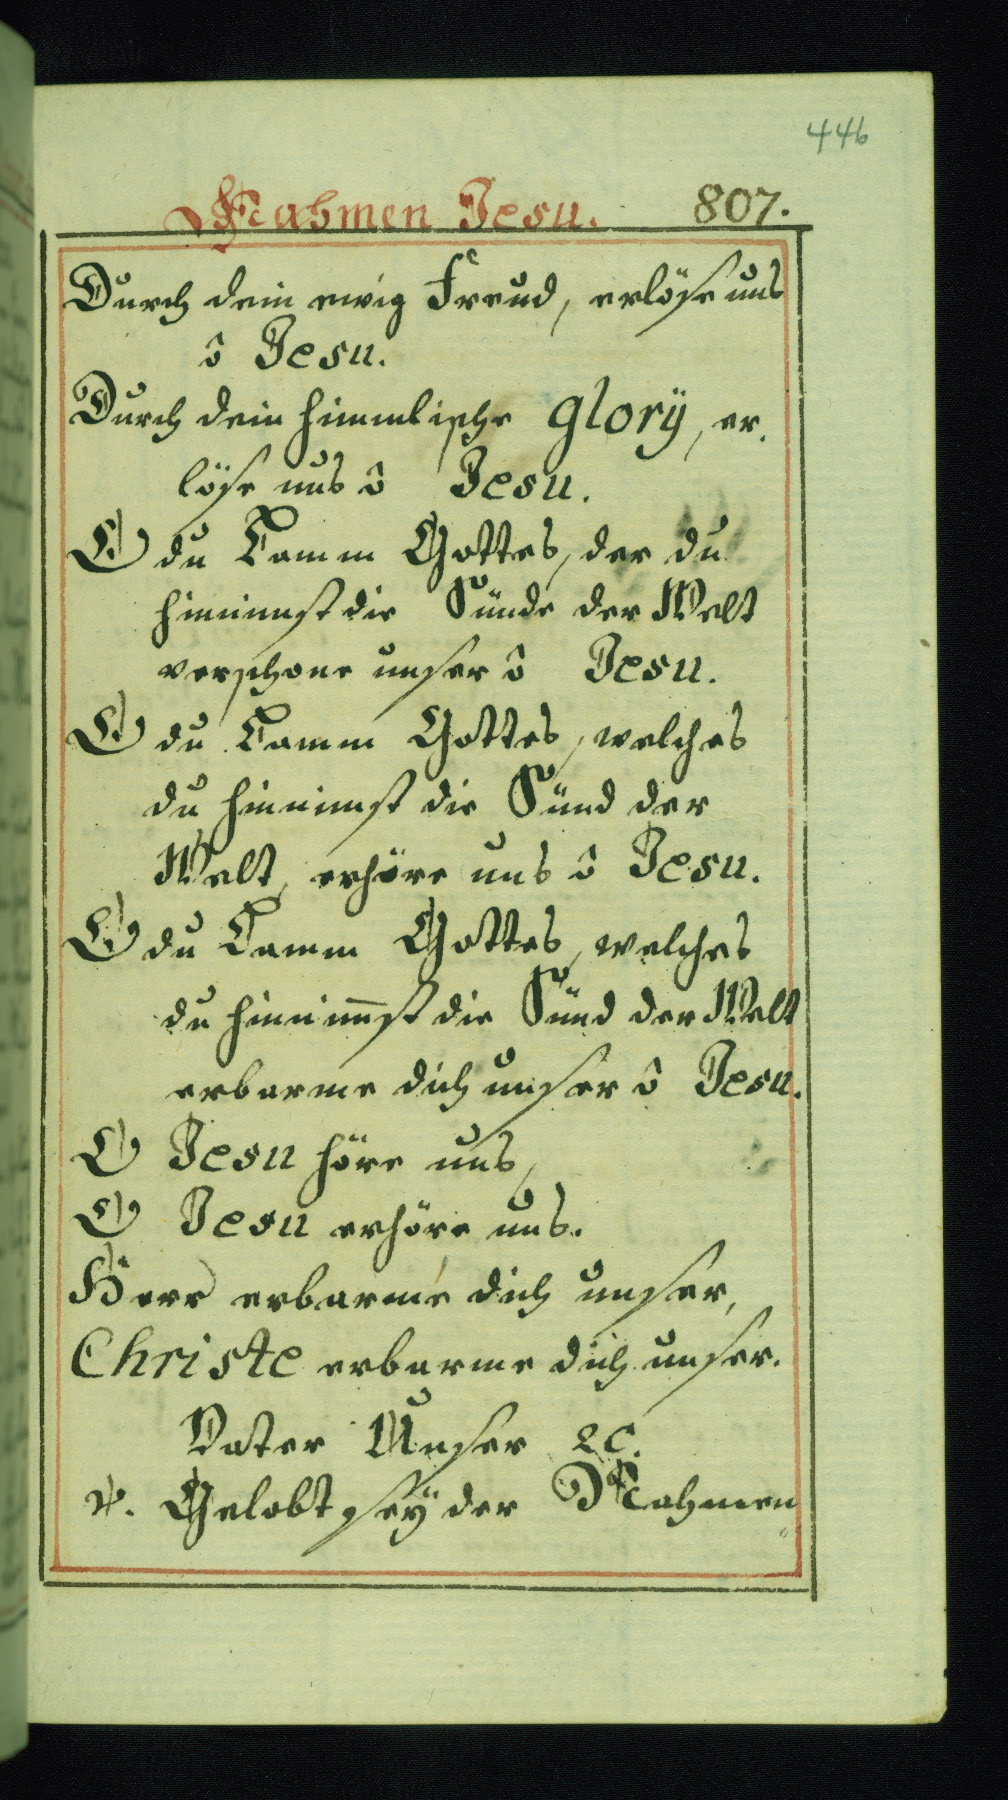 446
Nahmen Jesu. 807.
Durch dein ewig Freud, erlöse uns
ô Jesu.
Durch dein himmlische glorÿ, er,
löse uns ô Jesu.
O du Lamm Gottes, der du
hinnimst die Sünde der Welt
verschone unser ô Jesu.
O du Lamm Gottes, welches
du hinnimst die Sünd der
Welt, erhöre uns ô Jesu.
O du Lamm Gottes, welches
du hinnim̅st die Sünd der Welt
erbarme dich unser ô Jesu.
O Jesu höre uns,
O Jesu erhöre uns.
Herr erbarme dich unser,
Christe erbarme dich unser.
Vater Unser ꝛc.
℣. Gelobt seÿ der Nahmen